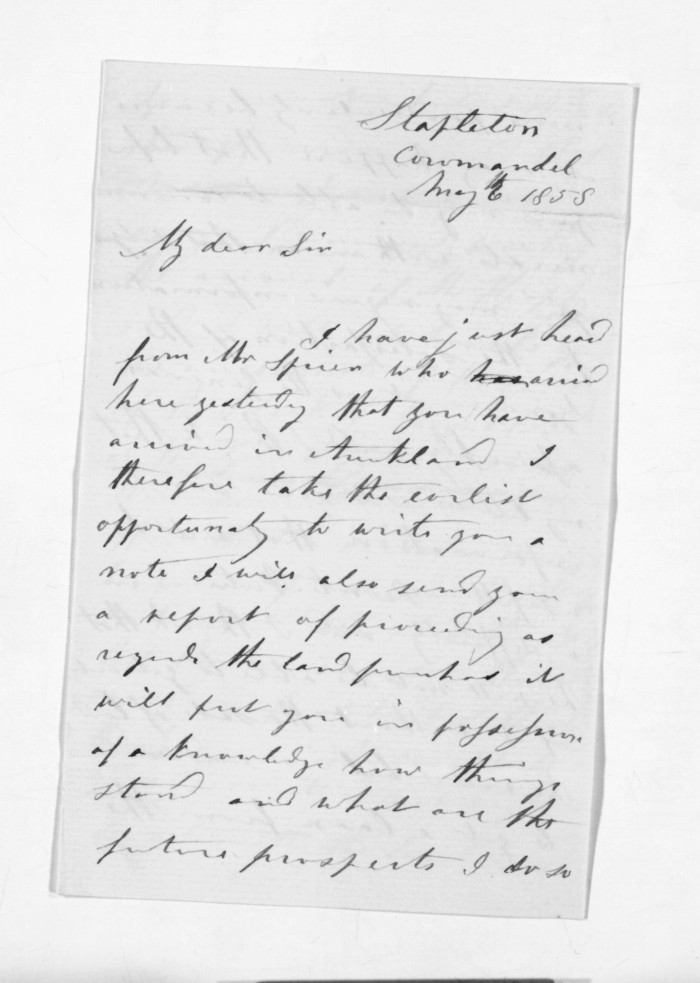 Stapleton
Cowmandel
May 6 1858
My dear Sir
I have just heard
from Mr who has arrived
here yesterday that you have
arrived in Auckland I
therefore take the earlist
opportunaty to write you a
note I will also send you
a report of proceeding as
regards the land purchas it
will put you in possession
of a knowledge how things
stand and what are the
future prospects I do so